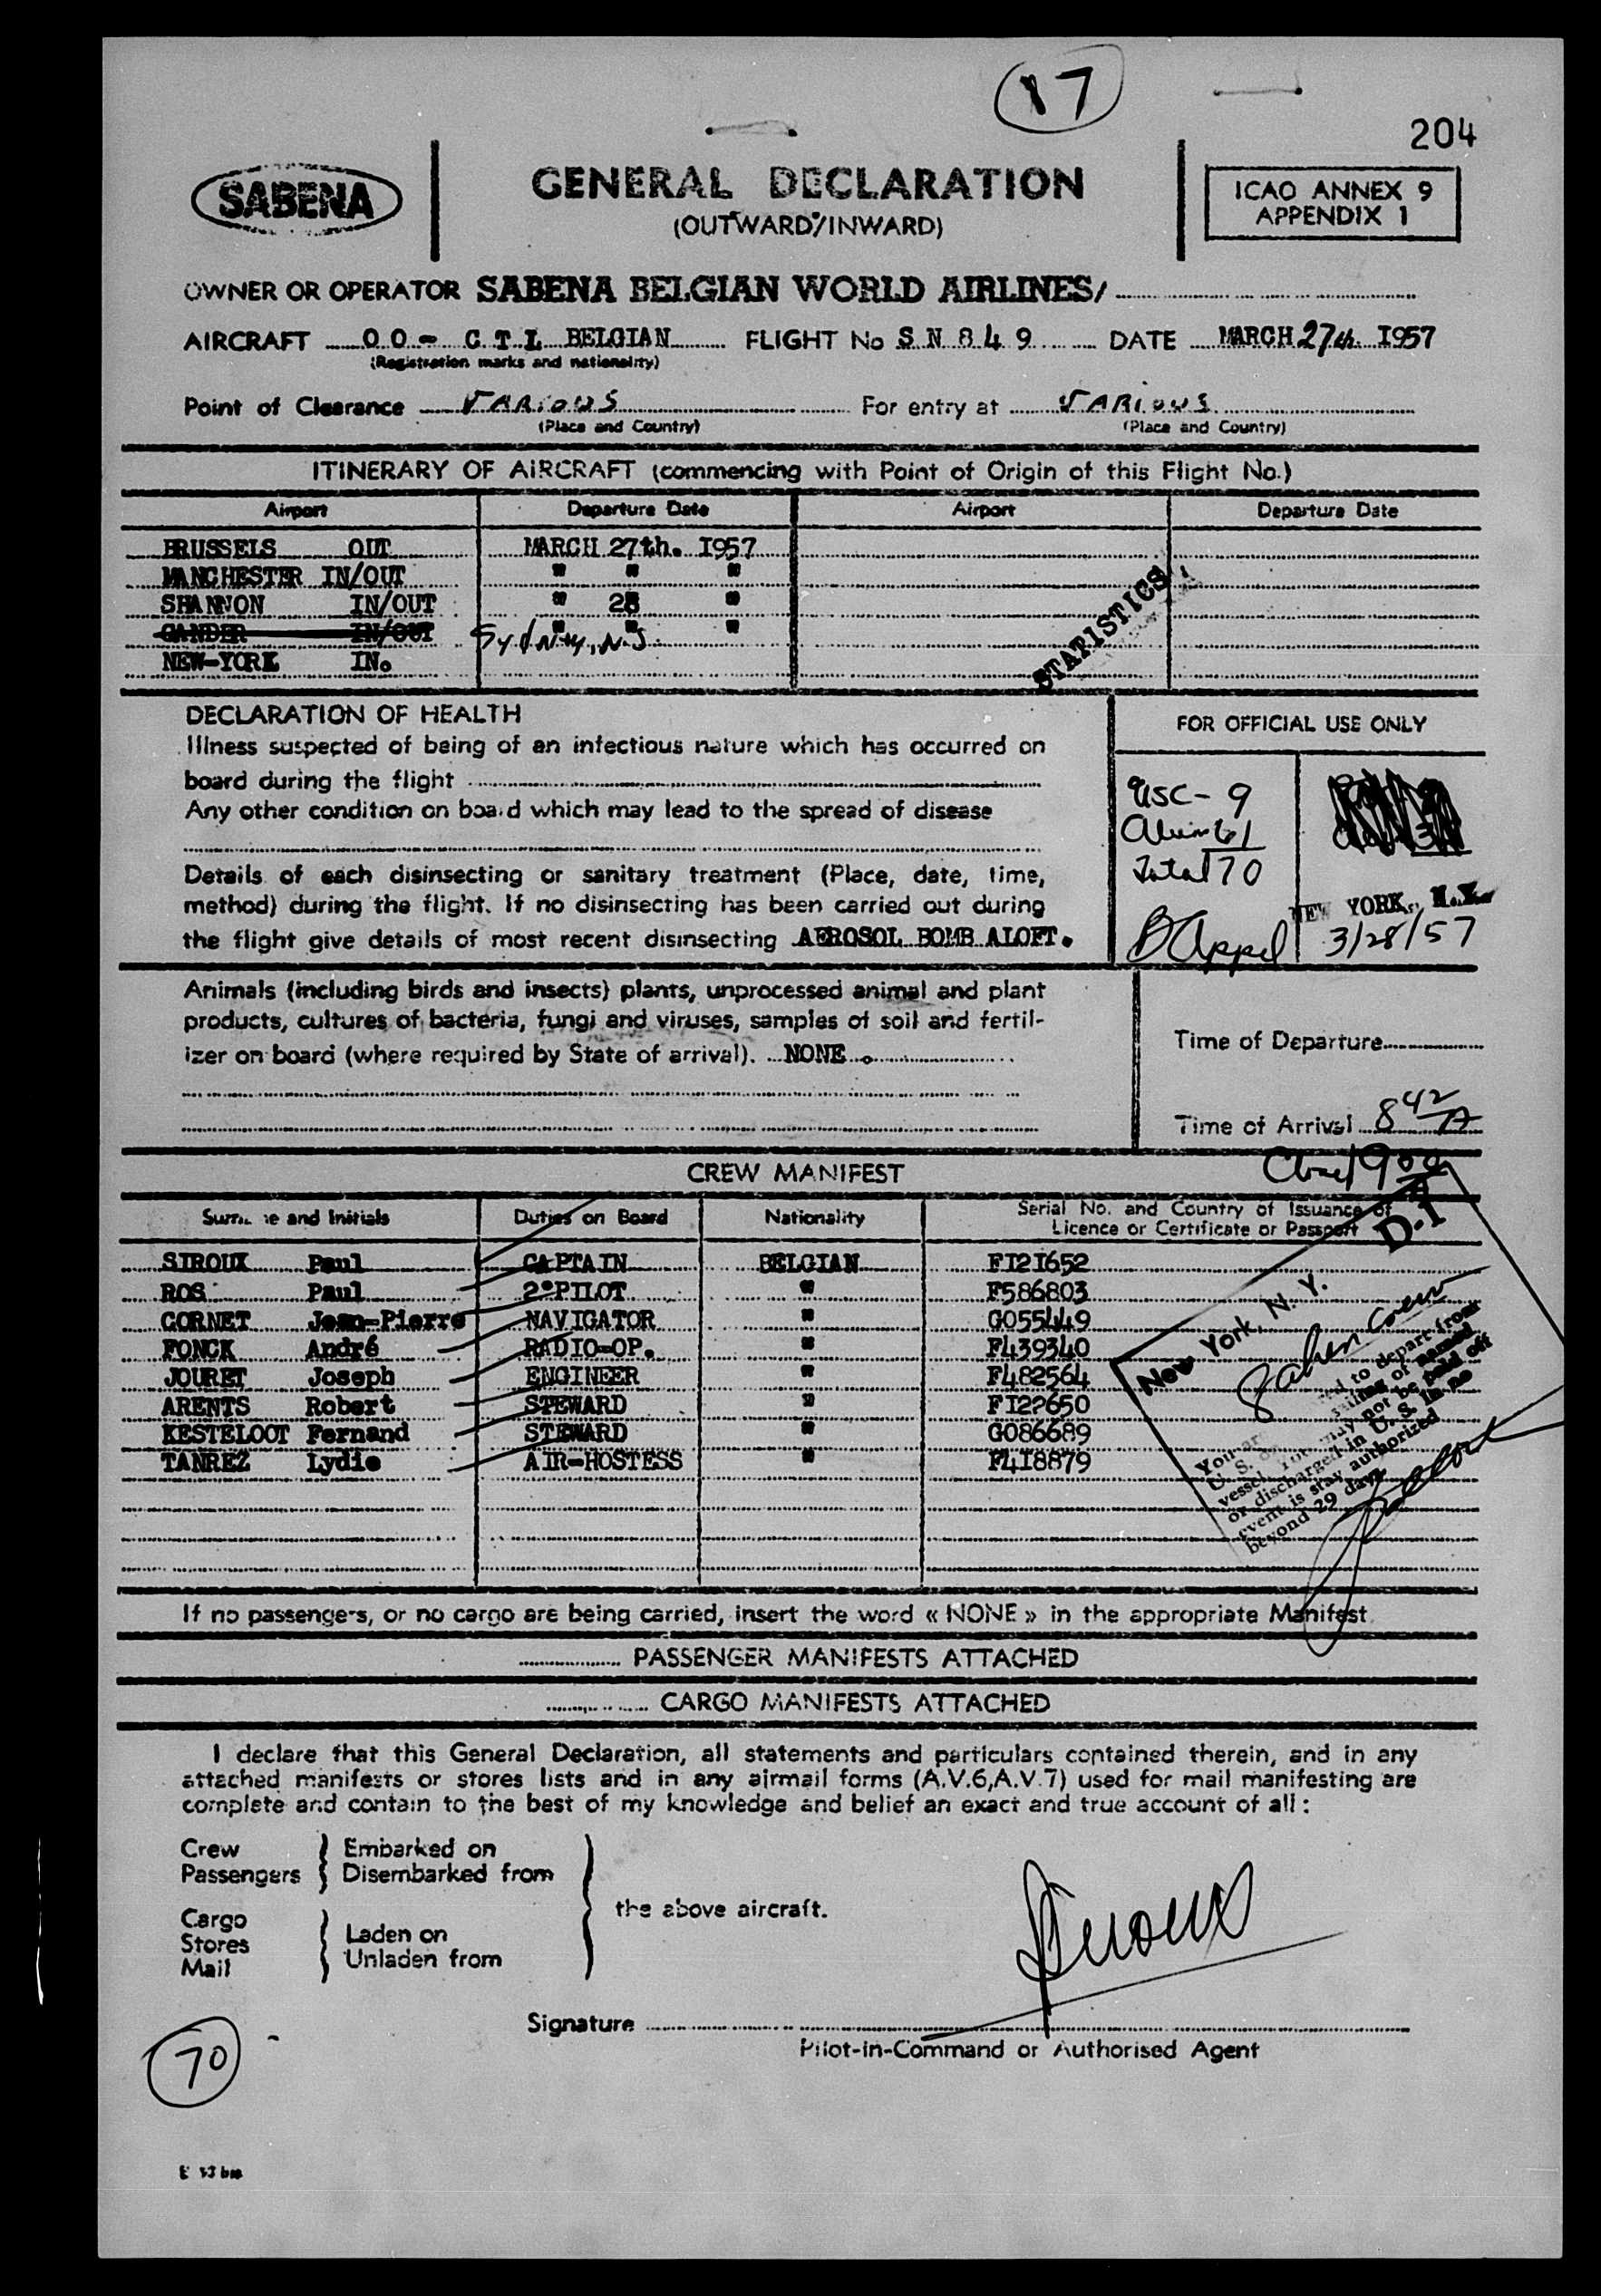 17
204
SABENA
GENERAL DECLARATION
(OUTWARD/INWARD)
ICAO ANNEX 9
APPENDIX 1
OWNER OR OPERATOR SABENA BELGIAN WORLD AIRLINES/
AIRCRAFT OO - C T L BELGIAN FLIGHT No S N 849 DATE MARCH 27th. I957
(Registration marks and nationality)
Point of Clearance VARIOUS For entry at VARIOUS
(Place and Country) (Place and Country)
ITINERARY OF AIRCRAFT (commencing with Point of Origin of this Flight No.)
Airport Departure Date Airport Departure Date
BRUSSELS OUT MARCH 27th. I957
MANCHESTER IN/OUT " " "
SHANNON IN/OUT " 28 "
GANDER IN/OUT Sydney, N.S. " " "
NEW-YORK IN.
STATISTICS
DECLARATION OF HEALTH
Illness suspected of being of an infectious nature which has occurred on
board during the flight
Any other condition on board which may lead to the spread of disease
Details of each disinsecting or sanitary treatment (Place, date, time,
method) during the flight. If no disinsecting has been carried out during
the flight give details of most recent disinsecting AEROSOL BOMB ALOFT.
FOR OFFICIAL USE ONLY
USC - 9
Alien 61
Total 70
B Appel
NEW YORK, N.Y.
3/28/57
Animals (including birds and insects) plants, unprocessed animal and plant
products, cultures of bacteria, fungi and viruses, samples of soil and fertil-
izer on board (where required by State of arrival). NONE.
Time of Departure
Time of Arrival 8 42 A
900 A
CREW MANIFEST
Surname and Initials Duties on Board Nationality Serial No. and Country of Issuance of
Licence or Certificate or Passport
SIROUX Paul CAPTAIN BELGIAN FI2I652
ROS Paul 2°PILOT " F586803
CORNET Jean-Pierre NAVIGATOR " G055449
FONCK André RADIO-OP. " F439340
JOURET Joseph ENGINEER " F482564
ARENTS Robert STEWARD " FI22650
KESTELOOT Fernand STEWARD " G086689
TANREZ Lydie AIR-HOSTESS " F4I8879
D-1
New York, N. Y.
Saben Crew
to depart from
U. S. sailing of named
vessel. You may not be paid off
or discharged in U. S. In no
event is stay authorized
beyond 29 days
If no passengers, or no cargo are being carried, insert the word « NONE » in the appropriate Manifest
PASSENGER MANIFESTS ATTACHED
CARGO MANIFESTS ATTACHED
I declare that this General Declaration, all statements and particulars contained therein, and in any
attached manifests or stores lists and in any airmail forms (A.V.6,A.V.7) used for mail manifesting are
complete and contain to the best of my knowledge and belief an exact and true account of all :
Crew Embarked on
Passengers Disembarked from
the above aircraft.
Cargo
Stores Laden on
Mail Unladen from
Siroux
Signature
Pilot-in-Command or Authorised Agent
70